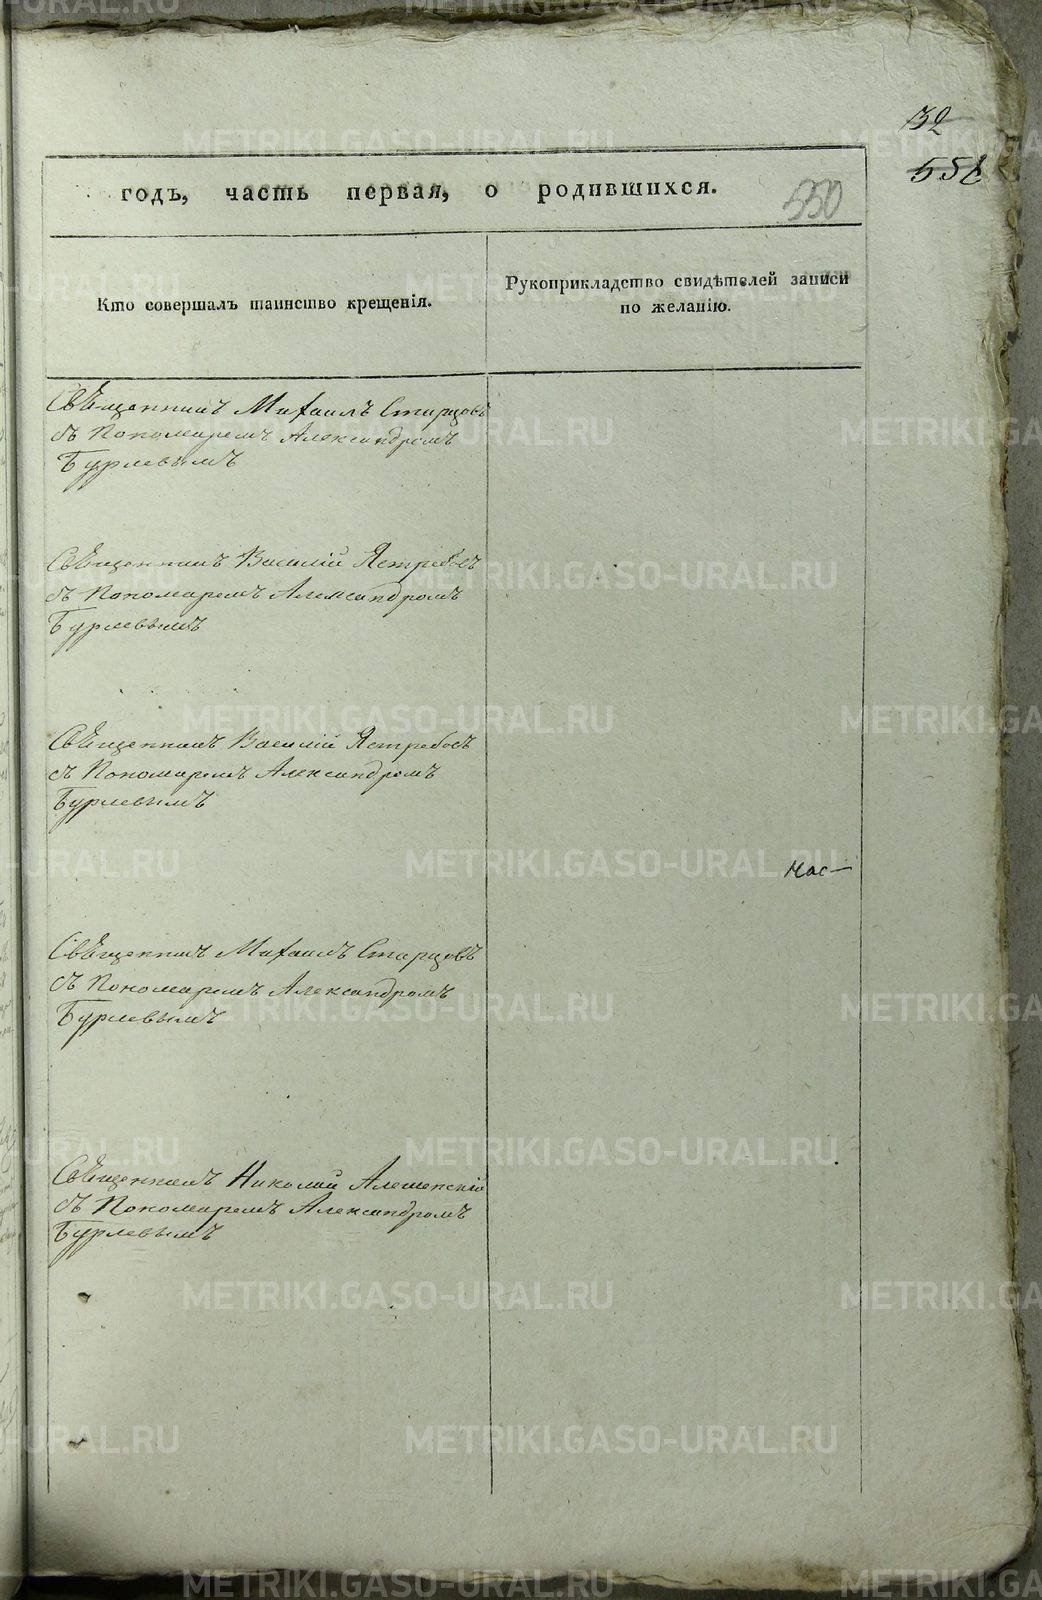 32
годъ, часть первая, о родившихся.
550
Кто совершалъ таинство крещенія.
Рукоприкладство свидѣтелей записи
по желанію.
Священникъ Михаилъ Старцовъ
съ Пономаремъ Александромъ
Бурлевымъ
Священникъ Василій Ястребовъ
съ Пономаремъ Александромъ
Бурлевымъ
Священникъ Василій Ястребовъ
съ Пономаремъ Александромъ
Бурлевымъ
Священникъ Михаилъ Старцовъ
съ Пономаремъ Александромъ
Бурлевымъ
Священникъ Николай
съ Пономаремъ Александромъ
Бурлевымъ
METRIKI.GASO-URAL.RU